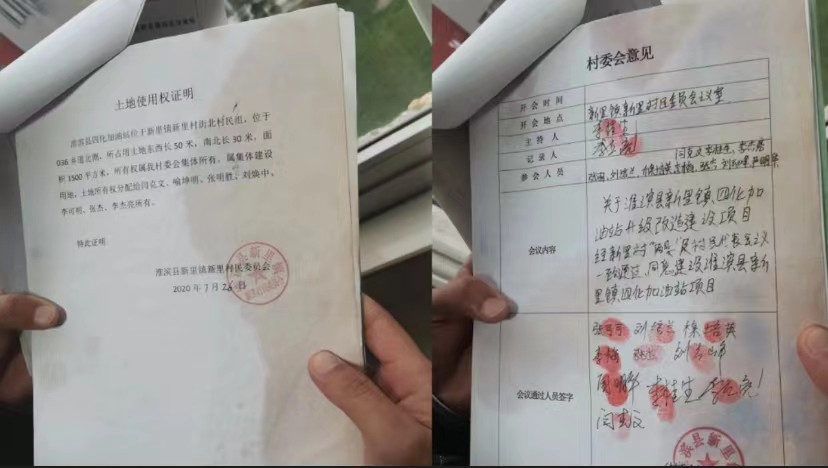 土地使用权证明
淮滨县四化加油站位于新里镇新里村街北村民组，位于
036乡道北侧，所占型土地东西长50米，南北长30米，面
积1500平方米，所有权属我村委会集体所有，属集体建设
用地，土地所有权分配给闫克文、喻坤明、张明胜、刘焕中、
李可刚、张杰、李杰亮所有。
特此证明
淮滨县新里镇新里村民委员会
2020年7月26日
村委会意见
开会时间
开会地点
新里镇新里村民委员会会议室
主持人
李桂生
记录人
参会人员
会议内容
关于淮滨县新里镇四化加
油站升级改造建设项目
经新里村"两委"及村民代表会议
一致通过，同意建设淮滨县新
里镇四化加油站项目
会议通过人员签字
李梅
李桂生
闫克文
滨县新里